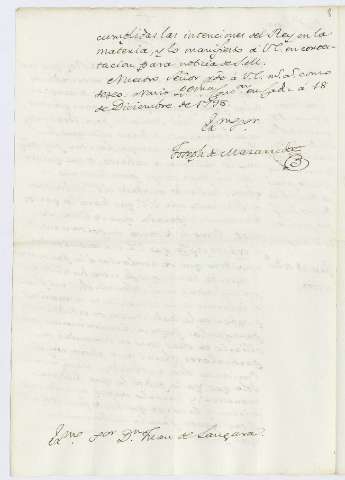 cumplidas las intenciones del Rey en la
materia, y lo manifiesto á V.E. en contes-
tacion para noticia de S.M.
Nuestro Señor gde á V.E. ms. as. como
deseo. Navio en Cadiz á 18
de Diciembre de 1798
Exmo. Sor.
Joseph de Mazarredo
Exmo. Sor. Dn. Juan de Langara.